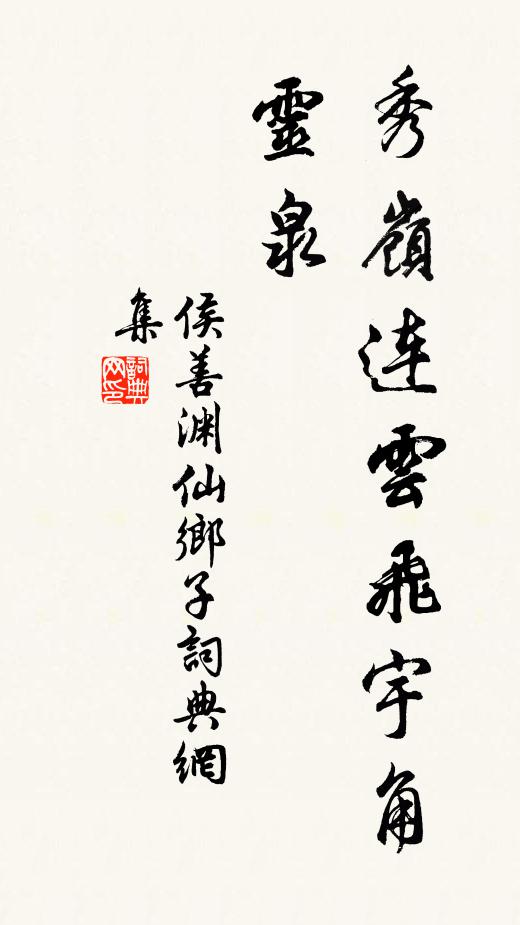 秀嶺連雲飛宇角
靈泉
侯善渊仙鄉子詞典網
集
詞典网印